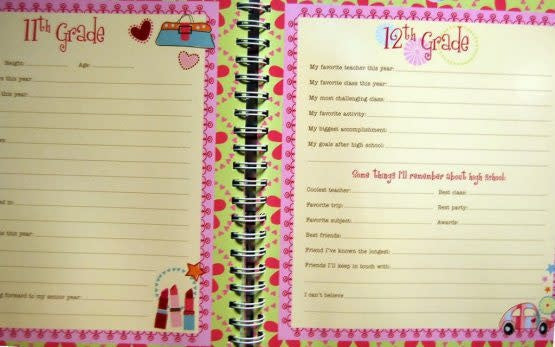 11th Grade
Height: Age
this year:
this year:
ed in:
s this year:
ng forward to my senior year:
12th Grade
My favorite teacher this year:
My favorite class this year:
My most challenging class:
My favorite activity:
My biggest accomplishment:
My goals after high school:
Some things I'll remember about high school:
Coolest teacher: Best class:
Favorite trip: Best party:
Favorite subject: Awards:
Best friends:
Friend I've known the longest:
Friends I'll keep in touch with:
I can't believe